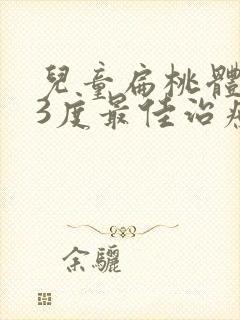 兒童扁桃體
3度最佳治療
余驪